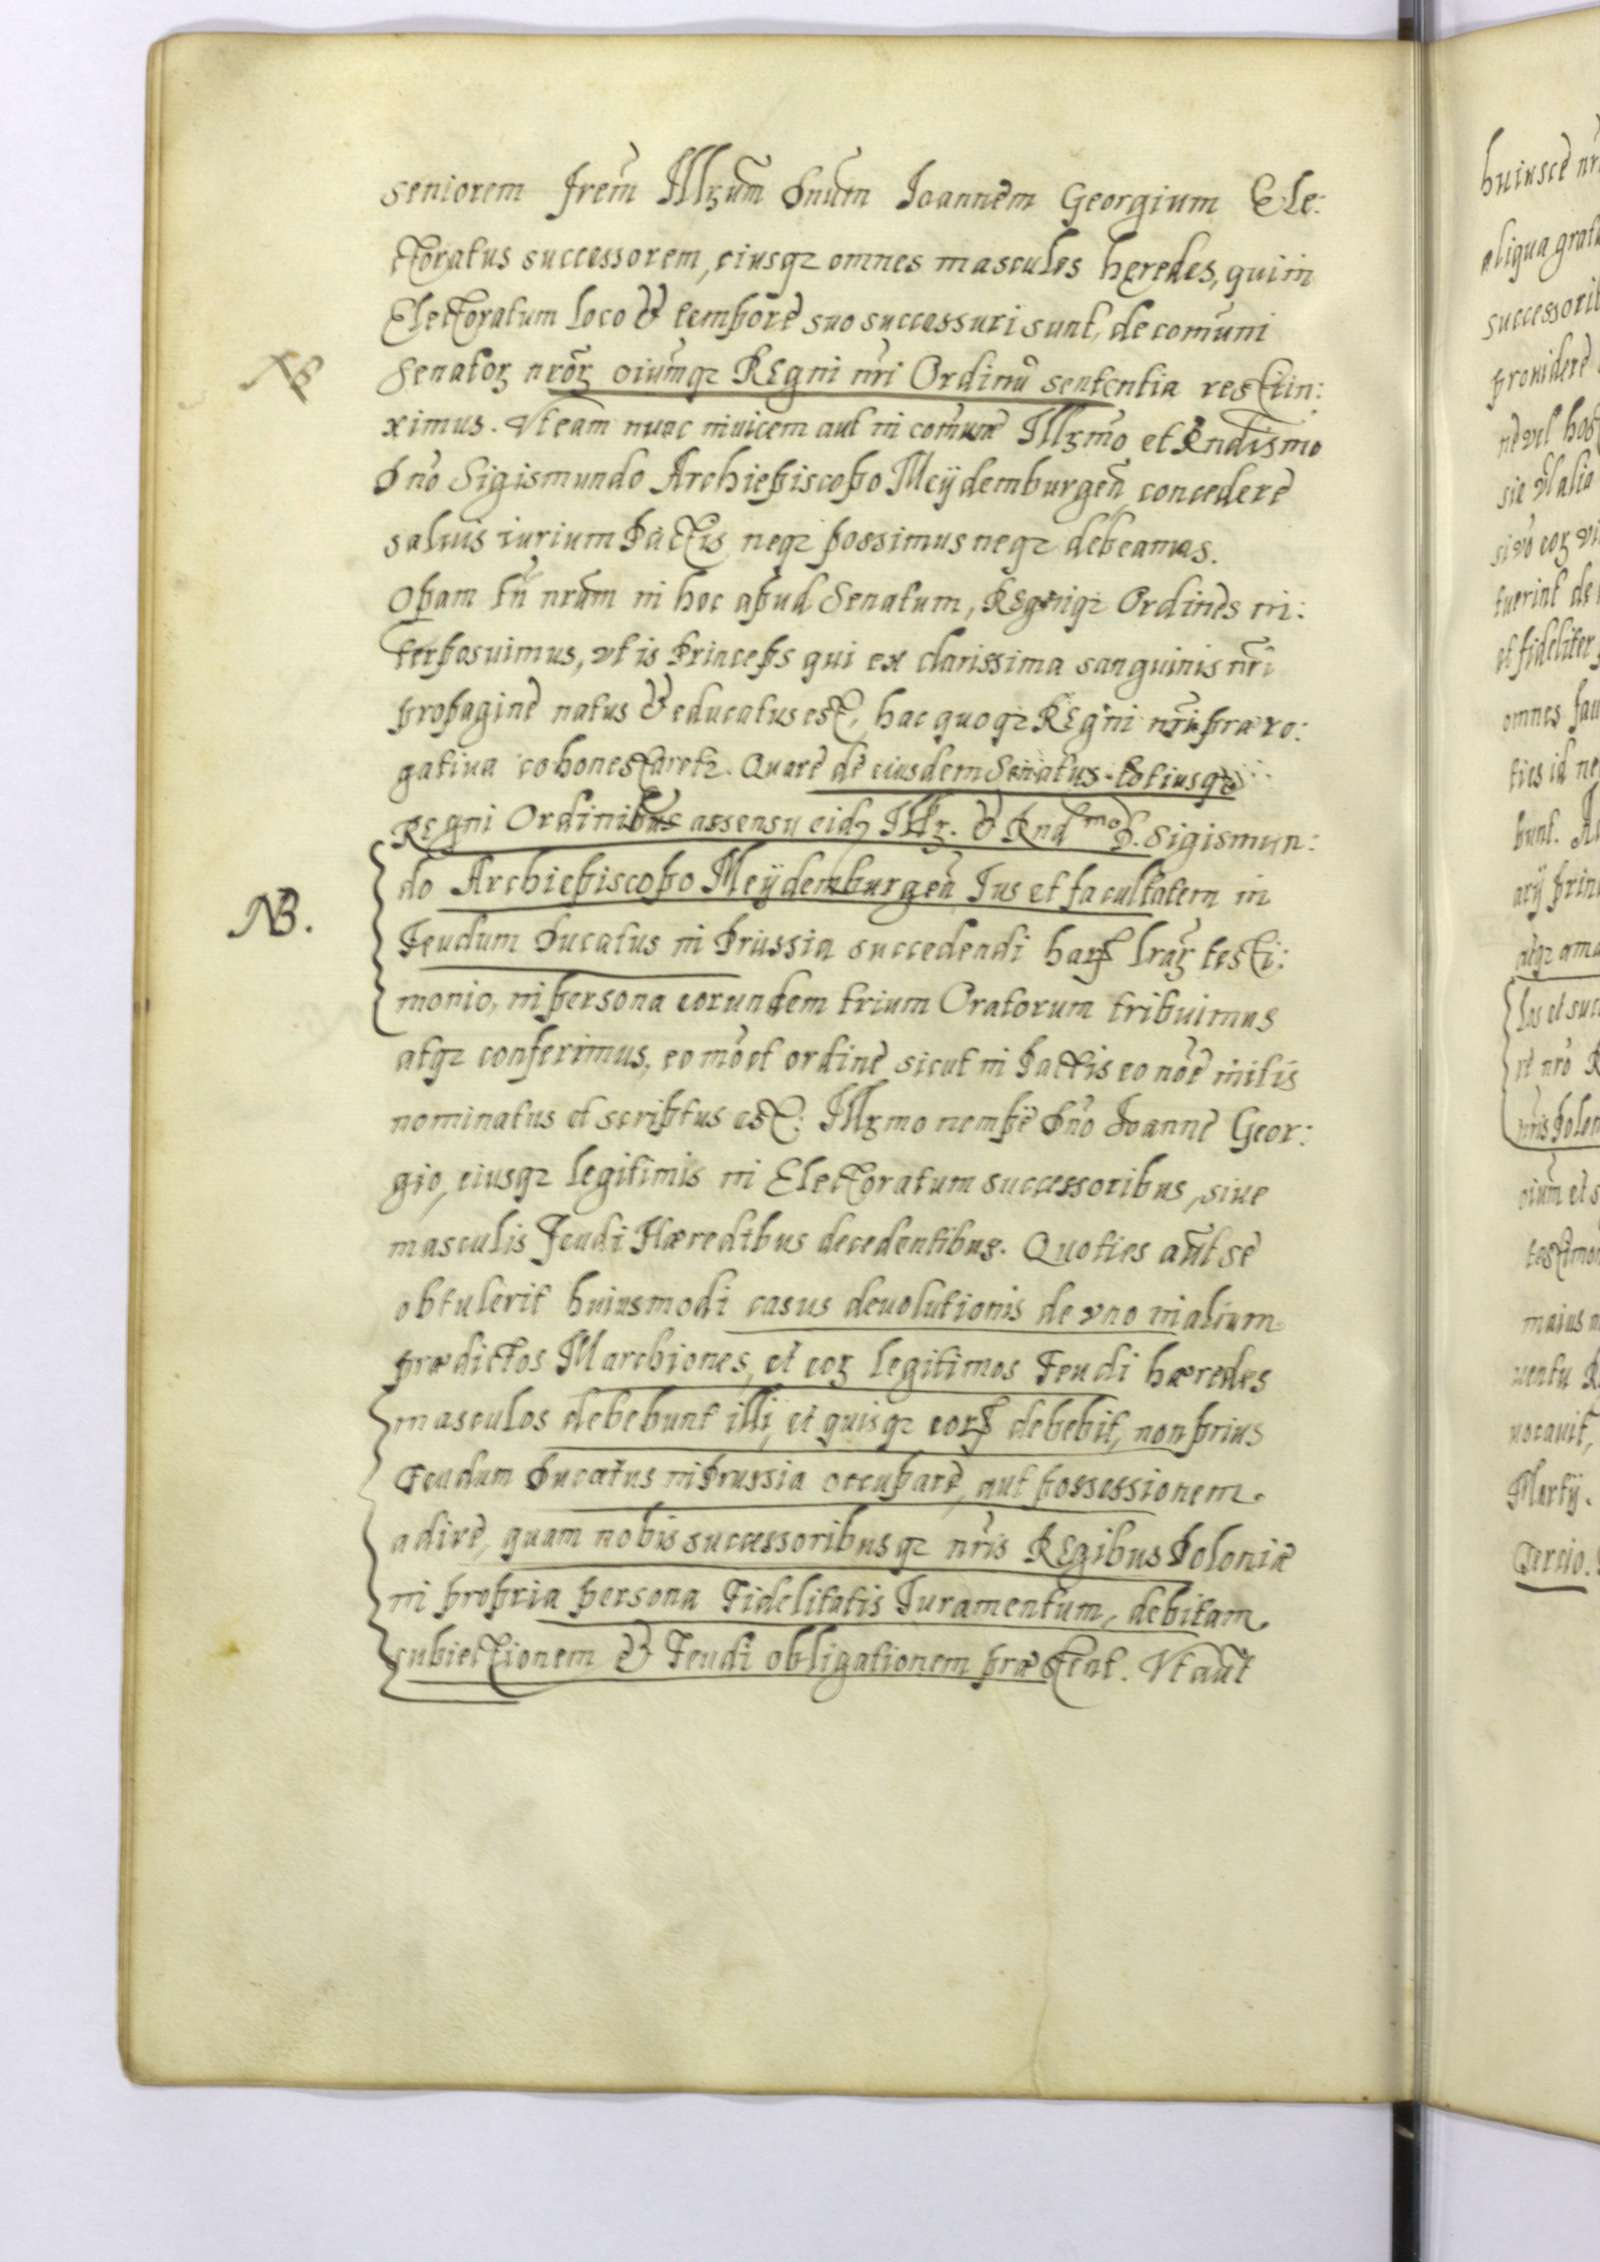 seniorem frem̃ Illꝛum̃ Dnum̃ Ioannem Georgium Ele:
ctoratus successorem, eiusqꝫ omnes masculos heredes, qui in
Electoratum loco & tempore suo successuri sunt, de com̃uni
NB
Senatoꝝ nrõꝝ oium̃qꝫ Regni nrĩ Ordinũ sententia restrin:
ximus. Vt eam nunc inuicem aut in com̃une Illꝛmo et Rndissmo
Dno Sigismundo Archiepiscopo Meÿdemburgeñ concedere
saluis iurium Pactis, neqꝫ possimus neqꝫ debeamus.
Opam tñ nram̃ in hoc apud Senatum, Regniqꝫ Ordines in:
terposuimus, vt is Princeps qui ex clarissima sanguinis nrĩ
propagine natus & educatus est, hac quoqꝫ Regni nrĩ præro:
gatiua cohonestaretꝛ. Quare de eiusdem Senatus totiusqꝫ
Regni Ordinibus assensu eidꝫ Illꝛ. & Rndmo D. Sigismun:
NB.
do Archiepiscopo Meÿdemburgeñ Ius et facultatem in
Feudum Ducatus in Prussia succedendi harꝝ lraꝝ testi:
monio, in persona eorundem trium Oratorum tribuimus
atqꝫ conferimus, eo mõ et ordine sicut in Pactis eo noẽ initis
nominatus et scriptus est: Illꝛmo nempe Dno Ioanne Geor:
gio, eiusqꝫ legitimis in Electoratum successoribus, siue
masculis Feudi Hæredibus decedentibus. Quoties aut̃ se
obtulerit huiusmodi casus deuolutionis de vno in alium
prædictos Marchiones, et eoꝝ legitimos Feudi hæredes
masculos debebunt illi, et quisqꝫ eorꝝ debebit, non prius
Feudum Ducatus in Prussia occupare, aut possessionem
adire, quam nobis successoribusqꝫ nrĩs Regibus Poloniæ
in propria persona Fidelitatis Iuramentum, debitam
subiectionem & Feudi obligationem præstent. Vt aut̃